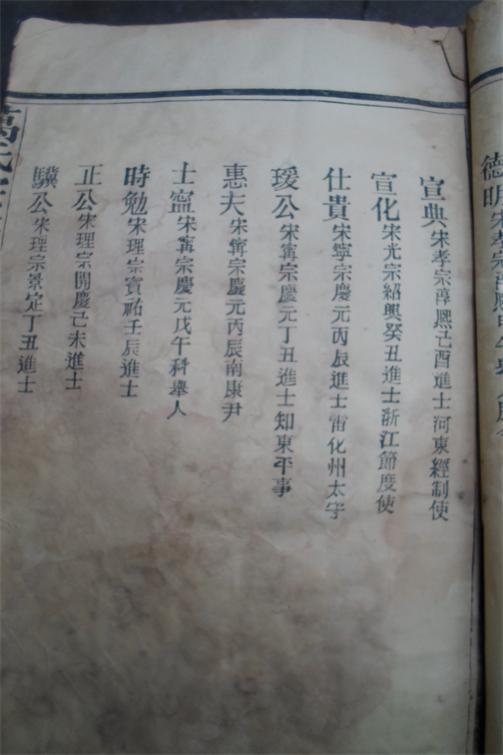 德明宋孝宗淳熙
宣典宋孝宗淳熙己酉進士河東經制使
宣化宋光宗紹興癸丑進士浙江節度使
仕貴宋寧宗慶元丙辰進士雷化州太守
瑗公宋寗宗慶元丁丑進士知東平事
惠夫宋寗宗慶元丙辰南康尹
士寍宋寗宗慶元戊午科舉人
時勉宋理宗寳祐壬辰進士
正公宋理宗開慶己未進士
驥公宋理宗景定丁丑進士
萬氏